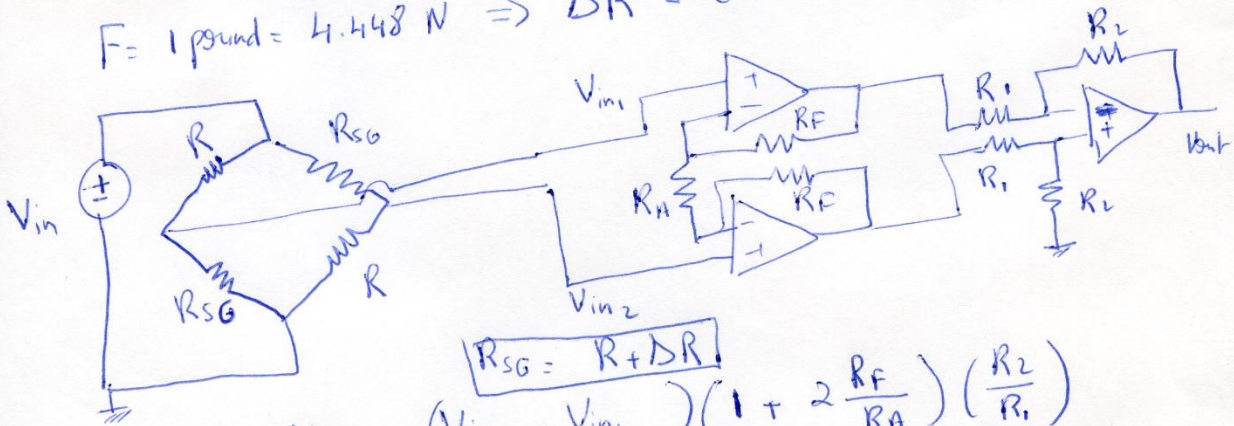 F = 1 pound = 4.448 N ⇒ ΔR =
R
RSG
Vin
±
RSG
R
Vin1
Vin2
+
−
RF
RA
RF
−
+
R1
R2
R1
+
R2
Vout
RSG = R + ΔR
(Vin Vin1)(1 + 2 RF/RA)(R2/R1)